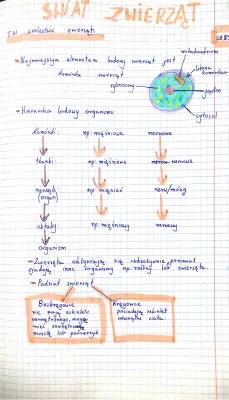 ŚWIAT ZWIERZĄT
T: W królestwie zwierząt
- Najmniejszym elementem budowy zwierząt jest
komórka zwierząt
mitochondrium
błona
komórkowa
jądro
cytozol
- Hierarchia budowy organizmu
komórki: np. mięśniowe nerwowe
tkanki: np. mięśniowe nerwowe
narząd: np. mięsień nerw/mózg
(organ)
układy: np. mięśniowy nerwowy
organizm
- Zwierzęta odżywiają się cudzożywnie, ponieważ
zjadają inne organizmy np. rośliny lub zwierzęta.
- Podział zwierząt
Bezkręgowe
nie mają szkieletu
wewnętrznego, mogą
mieć zewnętrzny
muszlę lub pancerzyk
Kręgowce
posiadają szkielet
wewnątrz ciała.